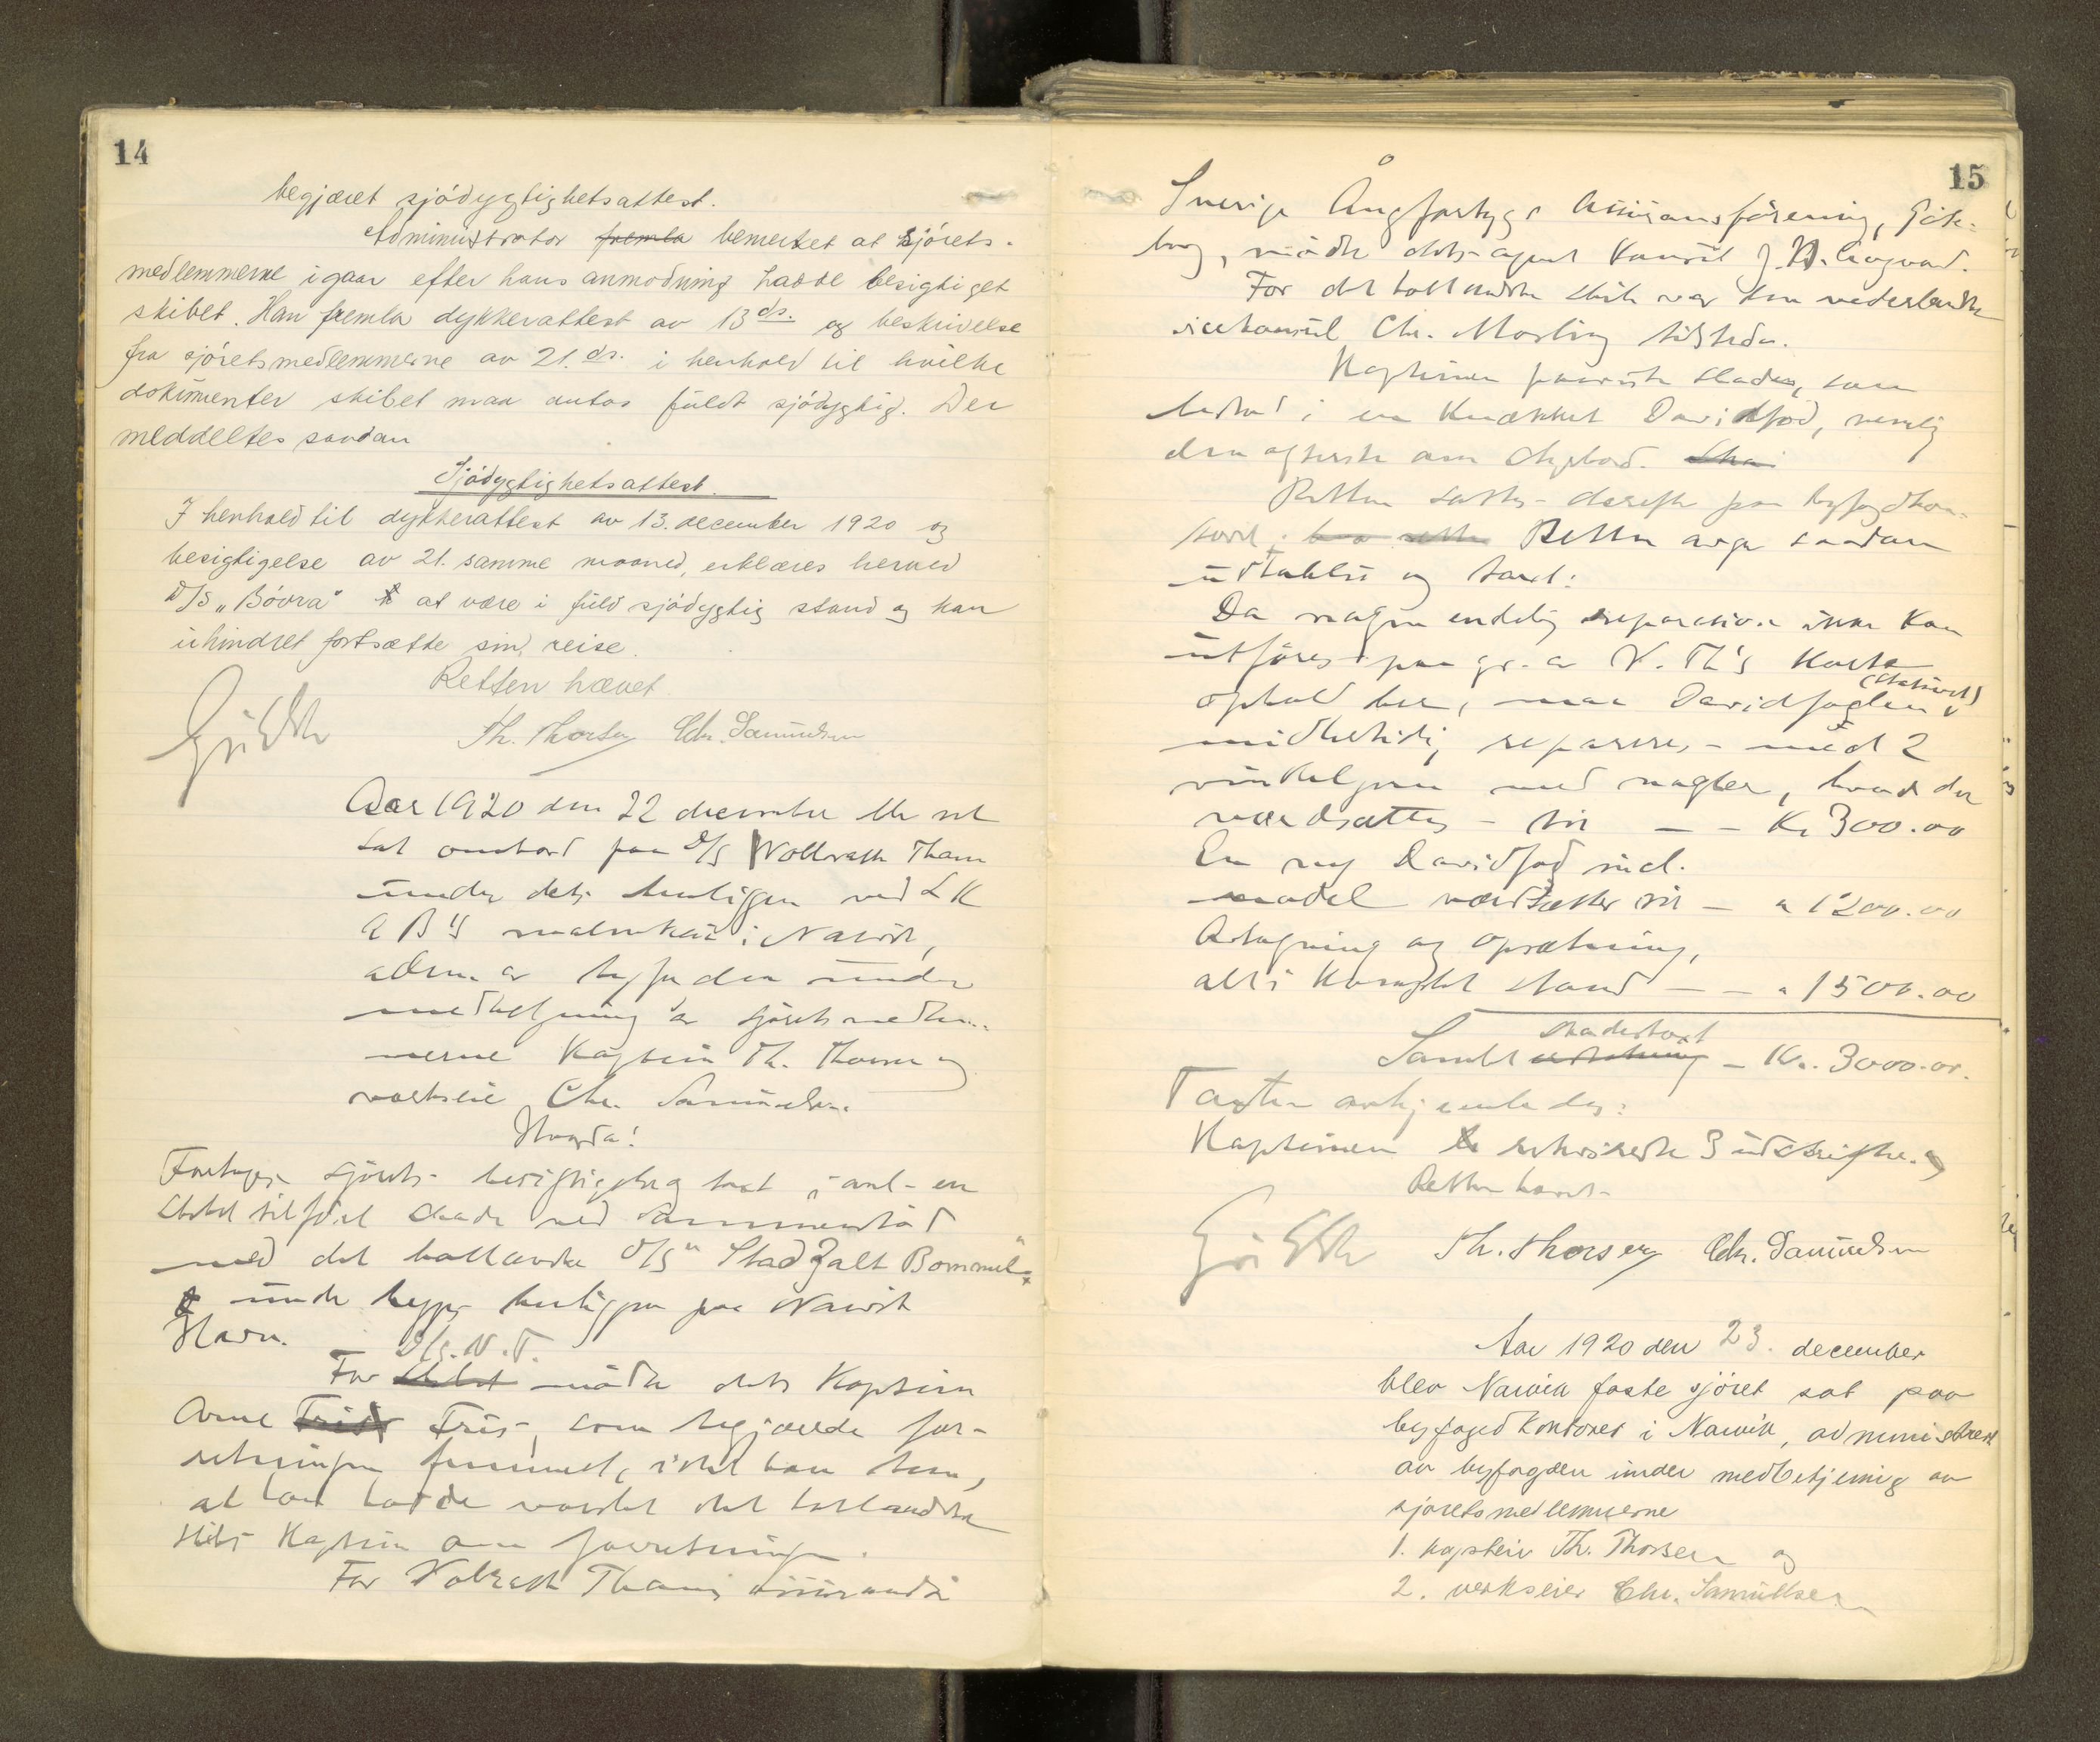 14
begjæret sjödygtighetsattest.
Administrator fremla bemerket at sjörets-
medlemmerne igaar efter hans anmodning hadde besigtiget
skibet. Han fremla dykkerattest av 13 ds. og beskrivelse
fra sjöretsmedlemmerne av 21. ds. i henhold til hvilke
dokumenter skibet maa antas fuldt sjödygtig. Der
meddeltes saadan
Sjödygtighetsattest.
I henhold til dykkerattest av 13. december 1920 og
besigtigelse av 21. samme maaned, erklæres herved
D/S "Bövra" at være i fuld sjödygtig stand og kan
uhindret fortsætte sin reise.
Retten hævet.
Th. Thorsen Chr. Samuelsen
Aar 1920 den 22 december ble ret
sat ombord paa D/S Wollrath Tham
under dets henliggen ved L K
A B's malmkai i Narvik,
adm. av byfogden under
medbetjening av sjöretsmedlem-
merne Kaptein Th. Thorsen og
verkseier Chr. Samuelsen
Hvorda!
Foretoges sjörets- besigtigelse i anl. en
skibet tilföiet skade ved sammenstöd
med det hollandske D/S "Stad Zalt Bommel"
under begges henliggen paa Narvik
Havn.
D/S. V. T.
For skibet mödte dets Kaptein
Arne Friis, som begjærte for-
retningen fremmet, idet han bem.
at han hadde varslet det hollandske
skibs Kaptein om forretningen.
For Volrath Thams assurandör
15
Sveriges Ångfartygs Assuransförening, Göte-
borg, mödte dets agent Konsul J. N. Aagaard.
For det hollandske skib var den nederlandske
vicekonsul Chr. Morling tilstede.
Kapteinen paaviste skaden, som
bestod i en knækket Davidfod, nemlig
den agterste om styrbord.
Retten sattes derefter paa byfogdkon-
toret. Retten avga saadan
uttalelse og taxt:
Da nogen endelig reparation ikke kan
utföres paa gr. av V. Th's korte
ophold her, maa Davidfoden (stativet)
midlertidig repareres med 2
vinkeljern med nagler, hvad der
værdsættes til — — Kr 300.00
En ny Davidfod incl.
model værdsættes til — " 1200.00
Avtagning og opsætning,
alt i komplet stand — — " 1500.00
Samlet skadestaxt — Kr. 3000.00.
Taxten avhjemledes:
Kapteinen rekvirerte 3 utskrifter.
Retten hævet.
Th. Thorsen Chr. Samuelsen
Aar 1920 den 23. december
blev Narvik faste sjöret sat paa
byfogedkontoret i Narvik, administrert
av byfogden under medbetjening av
sjöretsmedlemmerne
1. kaptein Th. Thorsen og
2. verkseier Chr. Samuelsen